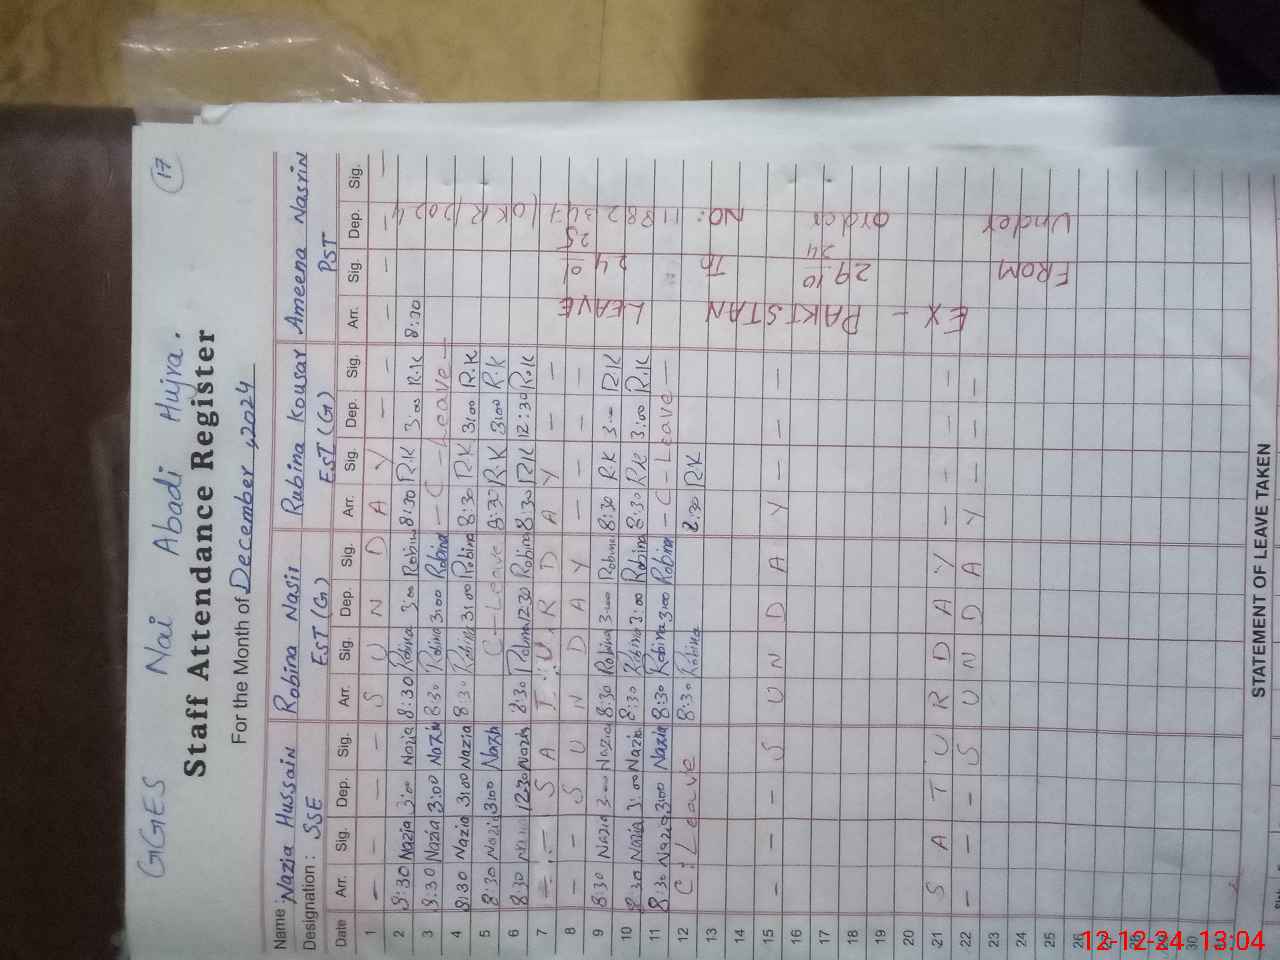 17
GGES Nai Abadi Hujra.
Staff Attendance Register
For the Month of December, 2024
Name: Nazia Hussain Robina Nasir Rubina Kousar Ameena Nasrin
Designation: SSE EST (G) EST (G) PST
Date Arr. Sig. Dep. Sig. Arr. Sig. Dep. Sig. Arr. Sig. Dep. Sig. Arr. Sig. Dep. Sig.
1 - - - - S U N D A Y - - - - - -
2 8:30 Nazia 3:00 Nazia 8:30 Robina 3:00 Robina 8:30 R.K 3:00 R.K 8:30
3 8:30 Nazia 3:00 Nazia 8:30 Robina 3:00 Robina - C - Leave -
4 8:30 Nazia 3:00 Nazia 8:30 Robina 3:00 Robina 8:30 R.K 3:00 R.K
5 8:30 Nazia 3:00 Nazia C - Leave 8:30 R.K 3:00 R.K
6 8:30 Nazia 12:30 Nazia 8:30 Robina 12:30 Robina 8:30 R.K 12:30 R.K
7 - - S A T U R D A Y - -
8 - - S U N D A Y - - - -
9 8:30 Nazia 3:00 Nazia 8:30 Robina 3:00 Robina 8:30 RK 3:00 RK
10 8:30 Nazia 3:00 Nazia 8:30 Robina 3:00 Robina 8:30 RK 3:00 R.K
11 8:30 Nazia 3:00 Nazia 8:30 Robina 3:00 Robina - C - Leave -
12 C: Leave 8:30 Robina 8:30 RK
13
14
15 - - - S U N D A Y - - -
16
17
18
19
20
21 S A T U R D A Y - - -
22 - - - S U N D A Y - - -
23
24
25
26
30
EX - PAKISTAN LEAVE
FROM 29.10 24 To 24 01 25
Under order NO: 1182347/OKR/2024
STATEMENT OF LEAVE TAKEN
12-12-24 13:04